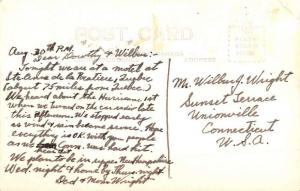 POST CARD
ADDRESS
Aug. 30th P.M.
Dear Dorothy & Wilbur:-
Tonight we are at a motel at
Ste Anne de la Beaupre, Quebec
(about 75 miles from Quebec)
We heard about the Hurricane out
when we turned on the car radio late
this afternoon. We stopped early
as wind & rain became worse. Hope
everything is O.K. with you people
as we hear Conn. was hard hit.
We plan to be in upper New Hampshire
Wed. night & home by Thurs. night
Dad & Mom Wright
Mr. Wilbur J. Wright
Sunset Terrace
Unionville
Connecticut
U.S.A.